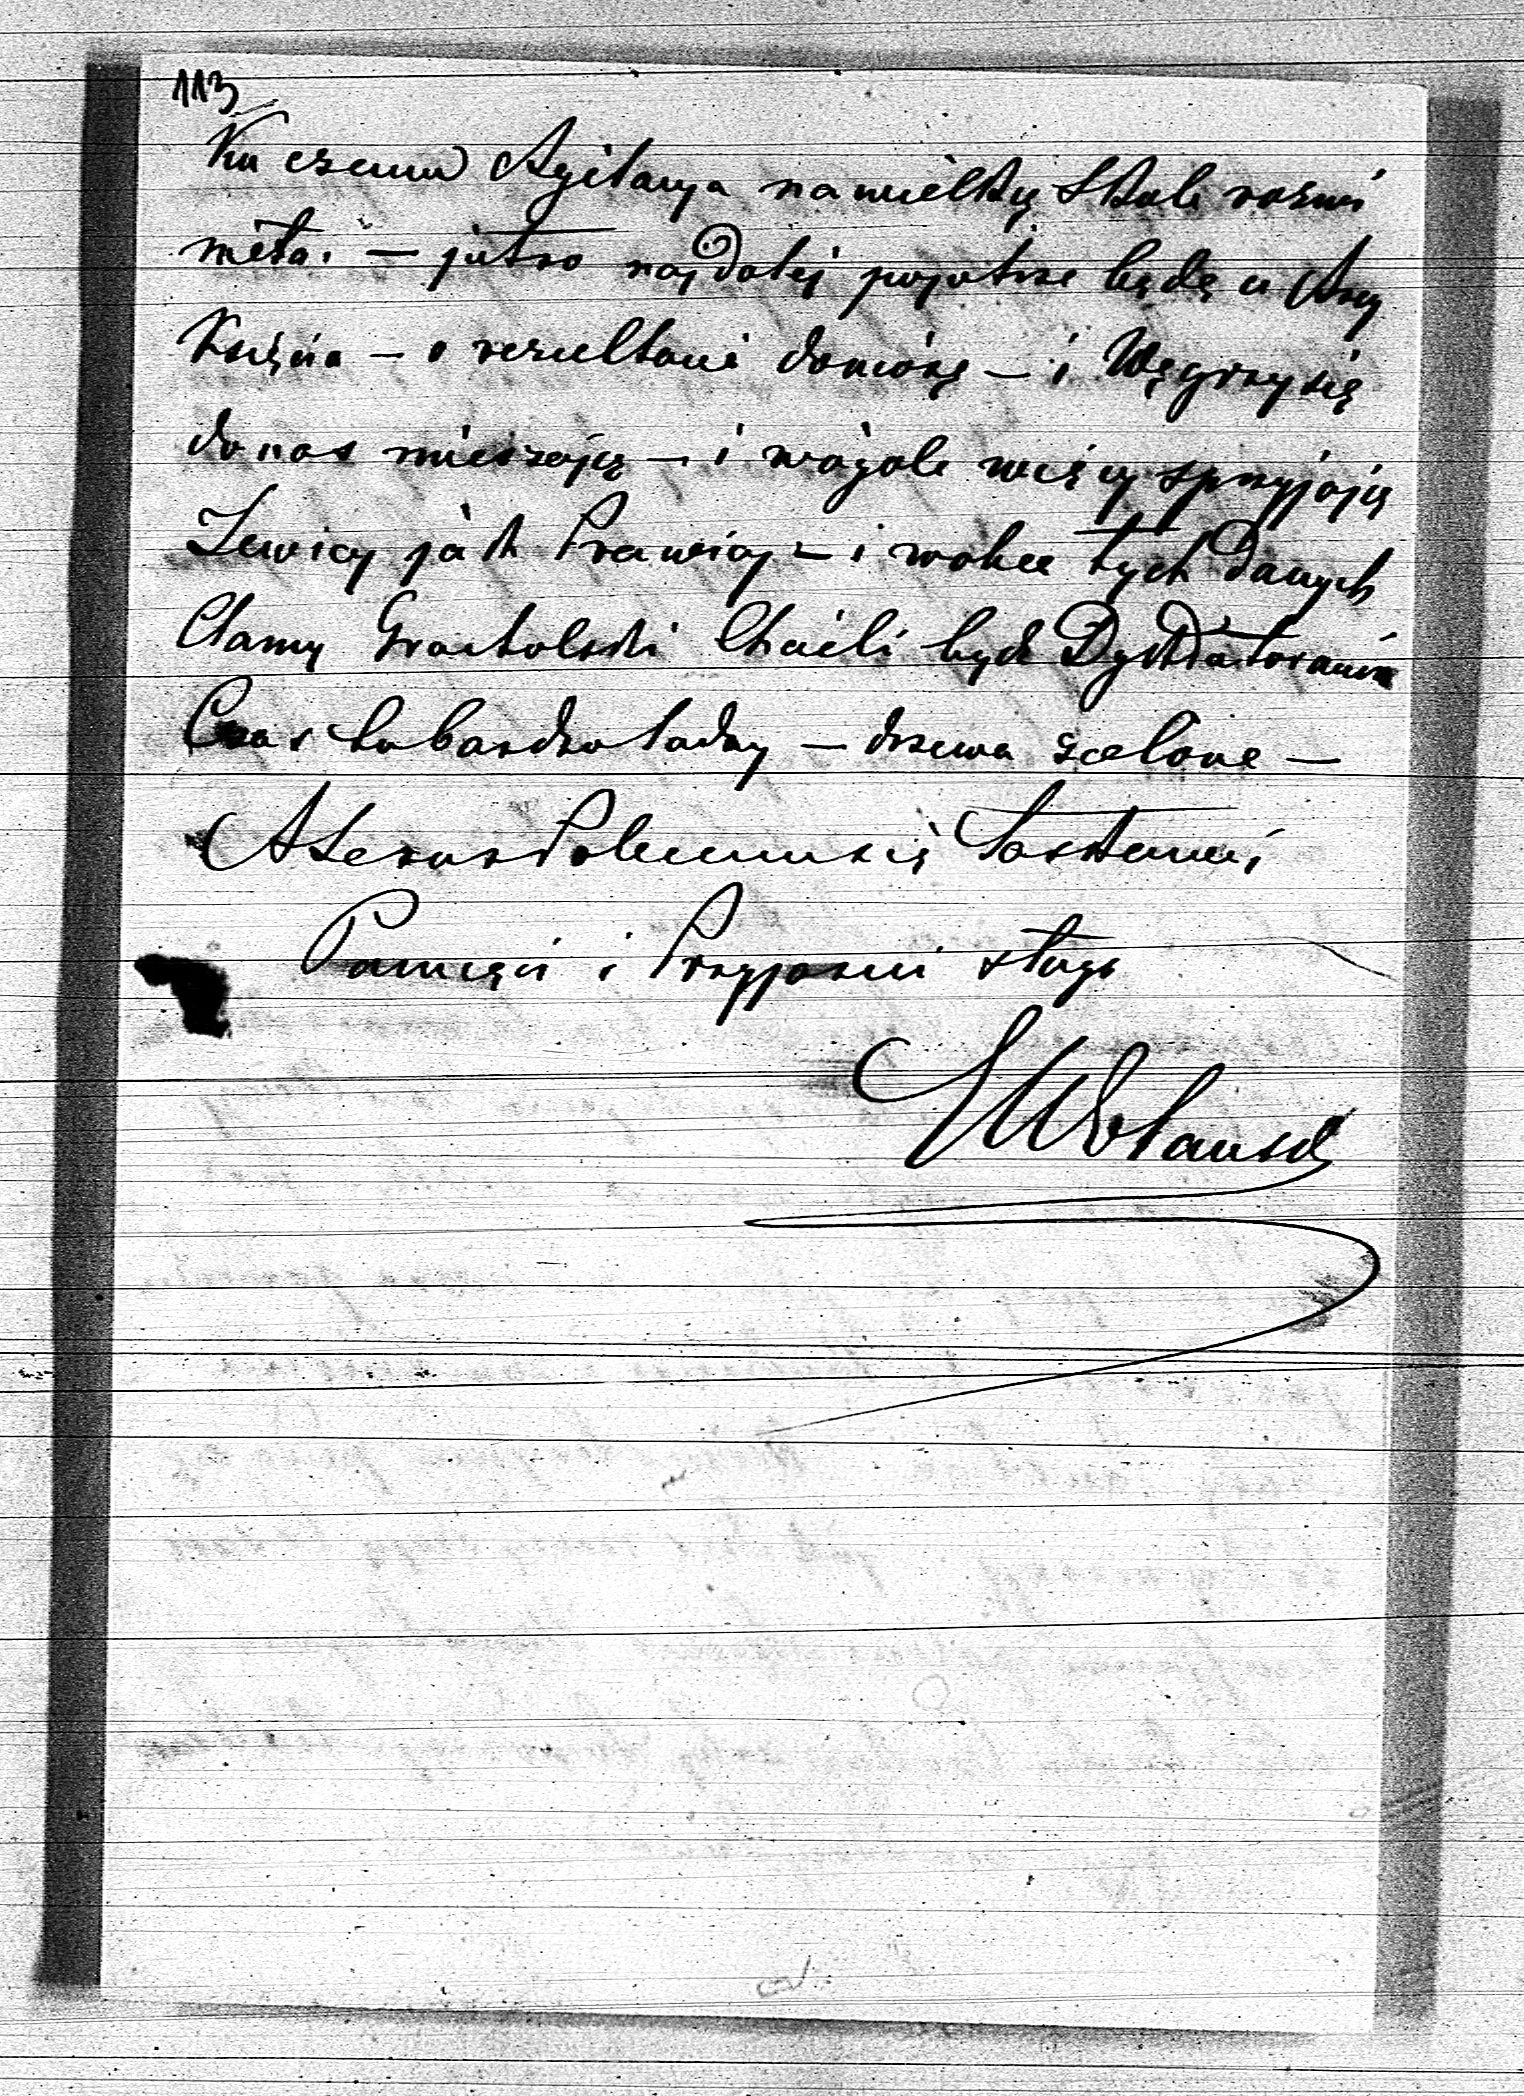 113
Ku czemu Agitacya na wielką skalę rozwi
nięta. — jutro najdalej pojutrze będę u Arcy
Księcia — o rezultacie doniosę — i Węgrzy się
do nas mieszają — i wogóle więcy sprzyjają
Lewicy jak Prawicy — i wobec tych danych
Clamy Grocholski chcieli być Dyktatorami
Czas tu bardzo ładny — drzewa zielone —
A teraz Polecam się Łaskawej
Pamięci i Przyjaźni sługa
Wolański